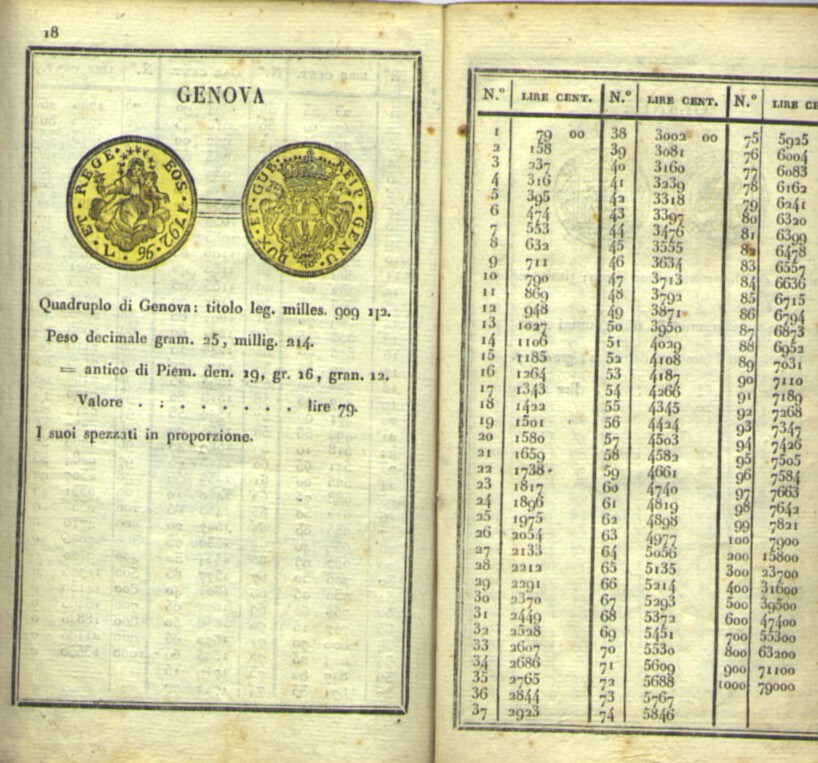 18
GENOVA
· ET · REGE · EOS · 1792 ·
L · 96 ·
DUX · ET · GUB · REIP · GENU ·
Quadruplo di Genova: titolo leg. milles. 909 1|2.
Peso decimale gram. 25, millig. 214.
= antico di Piem. den. 19, gr. 16, gran. 12.
Valore . : . . . . . . lire 79.
I suoi spezzati in proporzione.
N.º LIRE CENT. N.º LIRE CENT. N.º LIRE CE
1 79 00 38 3002 00 75 5925
2 158 39 3081 76 6004
3 237 40 3160 77 6083
4 316 41 3239 78 6162
5 395 42 3318 79 6241
6 474 43 3397 80 6320
7 553 44 3476 81 6399
8 632 45 3555 82 6478
9 711 46 3634 83 6557
10 790 47 3713 84 6636
11 869 48 3792 85 6715
12 948 49 3871 86 6794
13 1027 50 3950 87 6873
14 1106 51 4029 88 6952
15 1185 52 4108 89 7031
16 1264 53 4187 90 7110
17 1343 54 4266 91 7189
18 1422 55 4345 92 7268
19 1501 56 4424 93 7347
20 1580 57 4503 94 7426
21 1659 58 4582 95 7505
22 1738 59 4661 96 7584
23 1817 60 4740 97 7663
24 1896 61 4819 98 7642
25 1975 62 4898 99 7821
26 2054 63 4977 100 7900
27 2133 64 5056 200 15800
28 2212 65 5135 300 23700
29 2291 66 5214 400 31600
30 2370 67 5293 500 39500
31 2449 68 5372 600 47400
32 2528 69 5451 700 55300
33 2607 70 5530 800 63200
34 2686 71 5609 900 71100
35 2765 72 5688 1000 79000
36 2844 73 5767
37 2923 74 5846